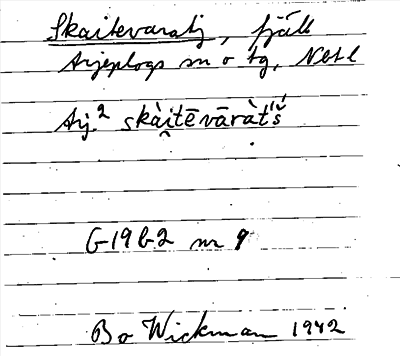 Skaitevaratj, fjäll
Arjeplogs sn o tg, Nbtl
Arj.² skài̭tēvāràt́š́
G19b2 nr 9
Bo Wickman 1942